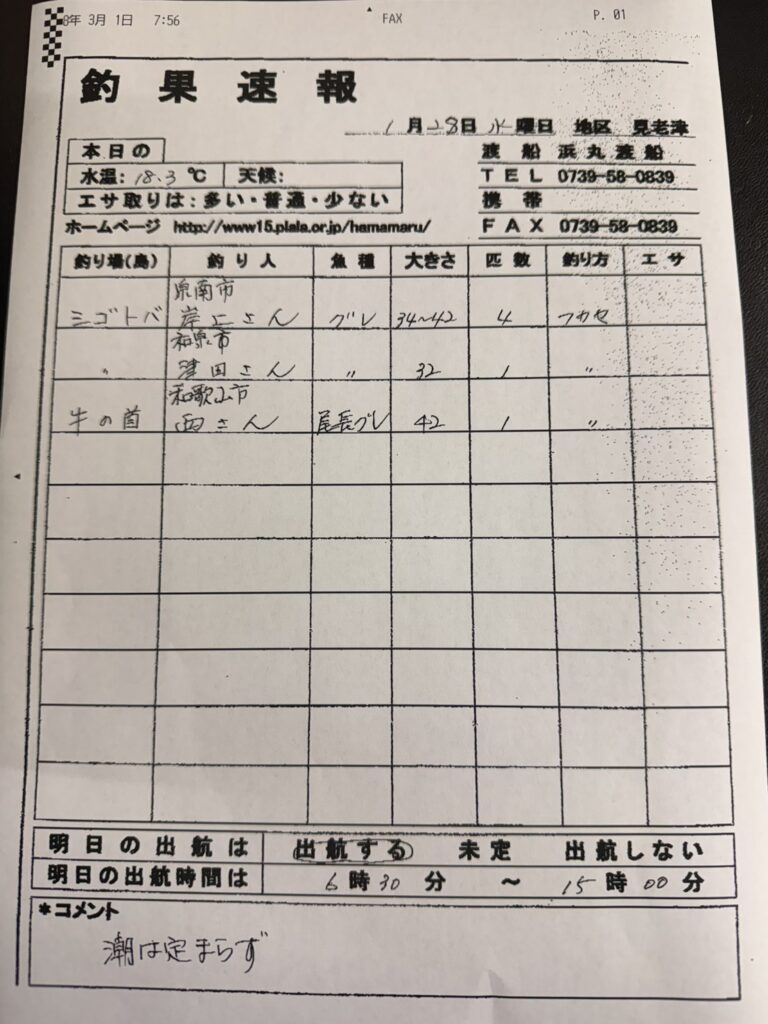 8年 3月 1日 7:56 FAX P. 01
釣果速報
1月28日水曜日 地区 見老津
本日の
水温: 18.3 ℃ 天候:
エサ取りは:多い・普通・少ない
渡船 浜丸渡船
TEL 0739-58-0839
携帯
FAX 0739-58-0839
ホームページ http://www15.plala.or.jp/hamamaru/
釣り場(島) 釣り人 魚種 大きさ 匹数 釣り方 エサ
泉南市
シゴトバ 岸上さん グレ 34~42 4 フカセ
和泉市
〃 津田さん 〃 32 1 〃
和歌山市
牛の首 西さん 尾長グレ 42 1 〃
明日の出航は 出航する 未定 出航しない
明日の出航時間は 6時30分 ~ 15時00分
*コメント
潮は定まらず